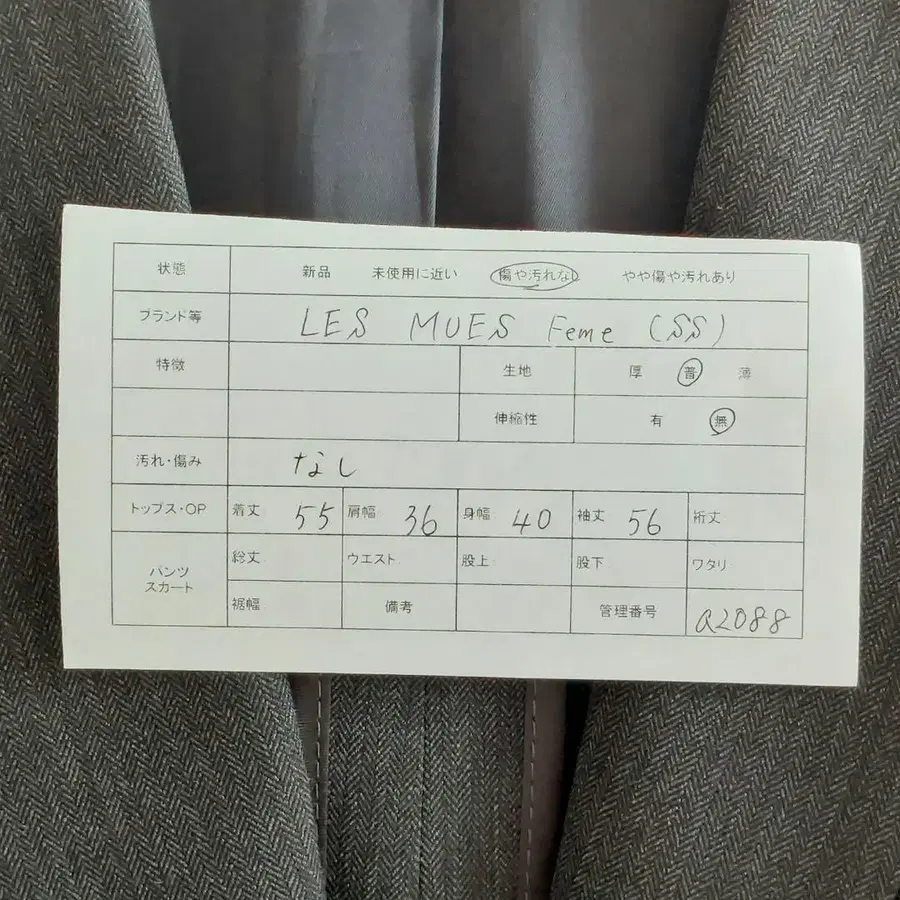 状態 新品 未使用に近い 傷や汚れなし やや傷や汚れあり
ブランド等 LES MUES Feme (SS)
特徴 生地 厚 普 薄
伸縮性 有 無
汚れ・傷み なし
トップス・OP 着丈 55 肩幅 36 身幅 40 袖丈 56 裄丈
パンツ スカート 総丈 ウエスト 股上 股下 ワタリ
裾幅 備考 管理番号 a2088